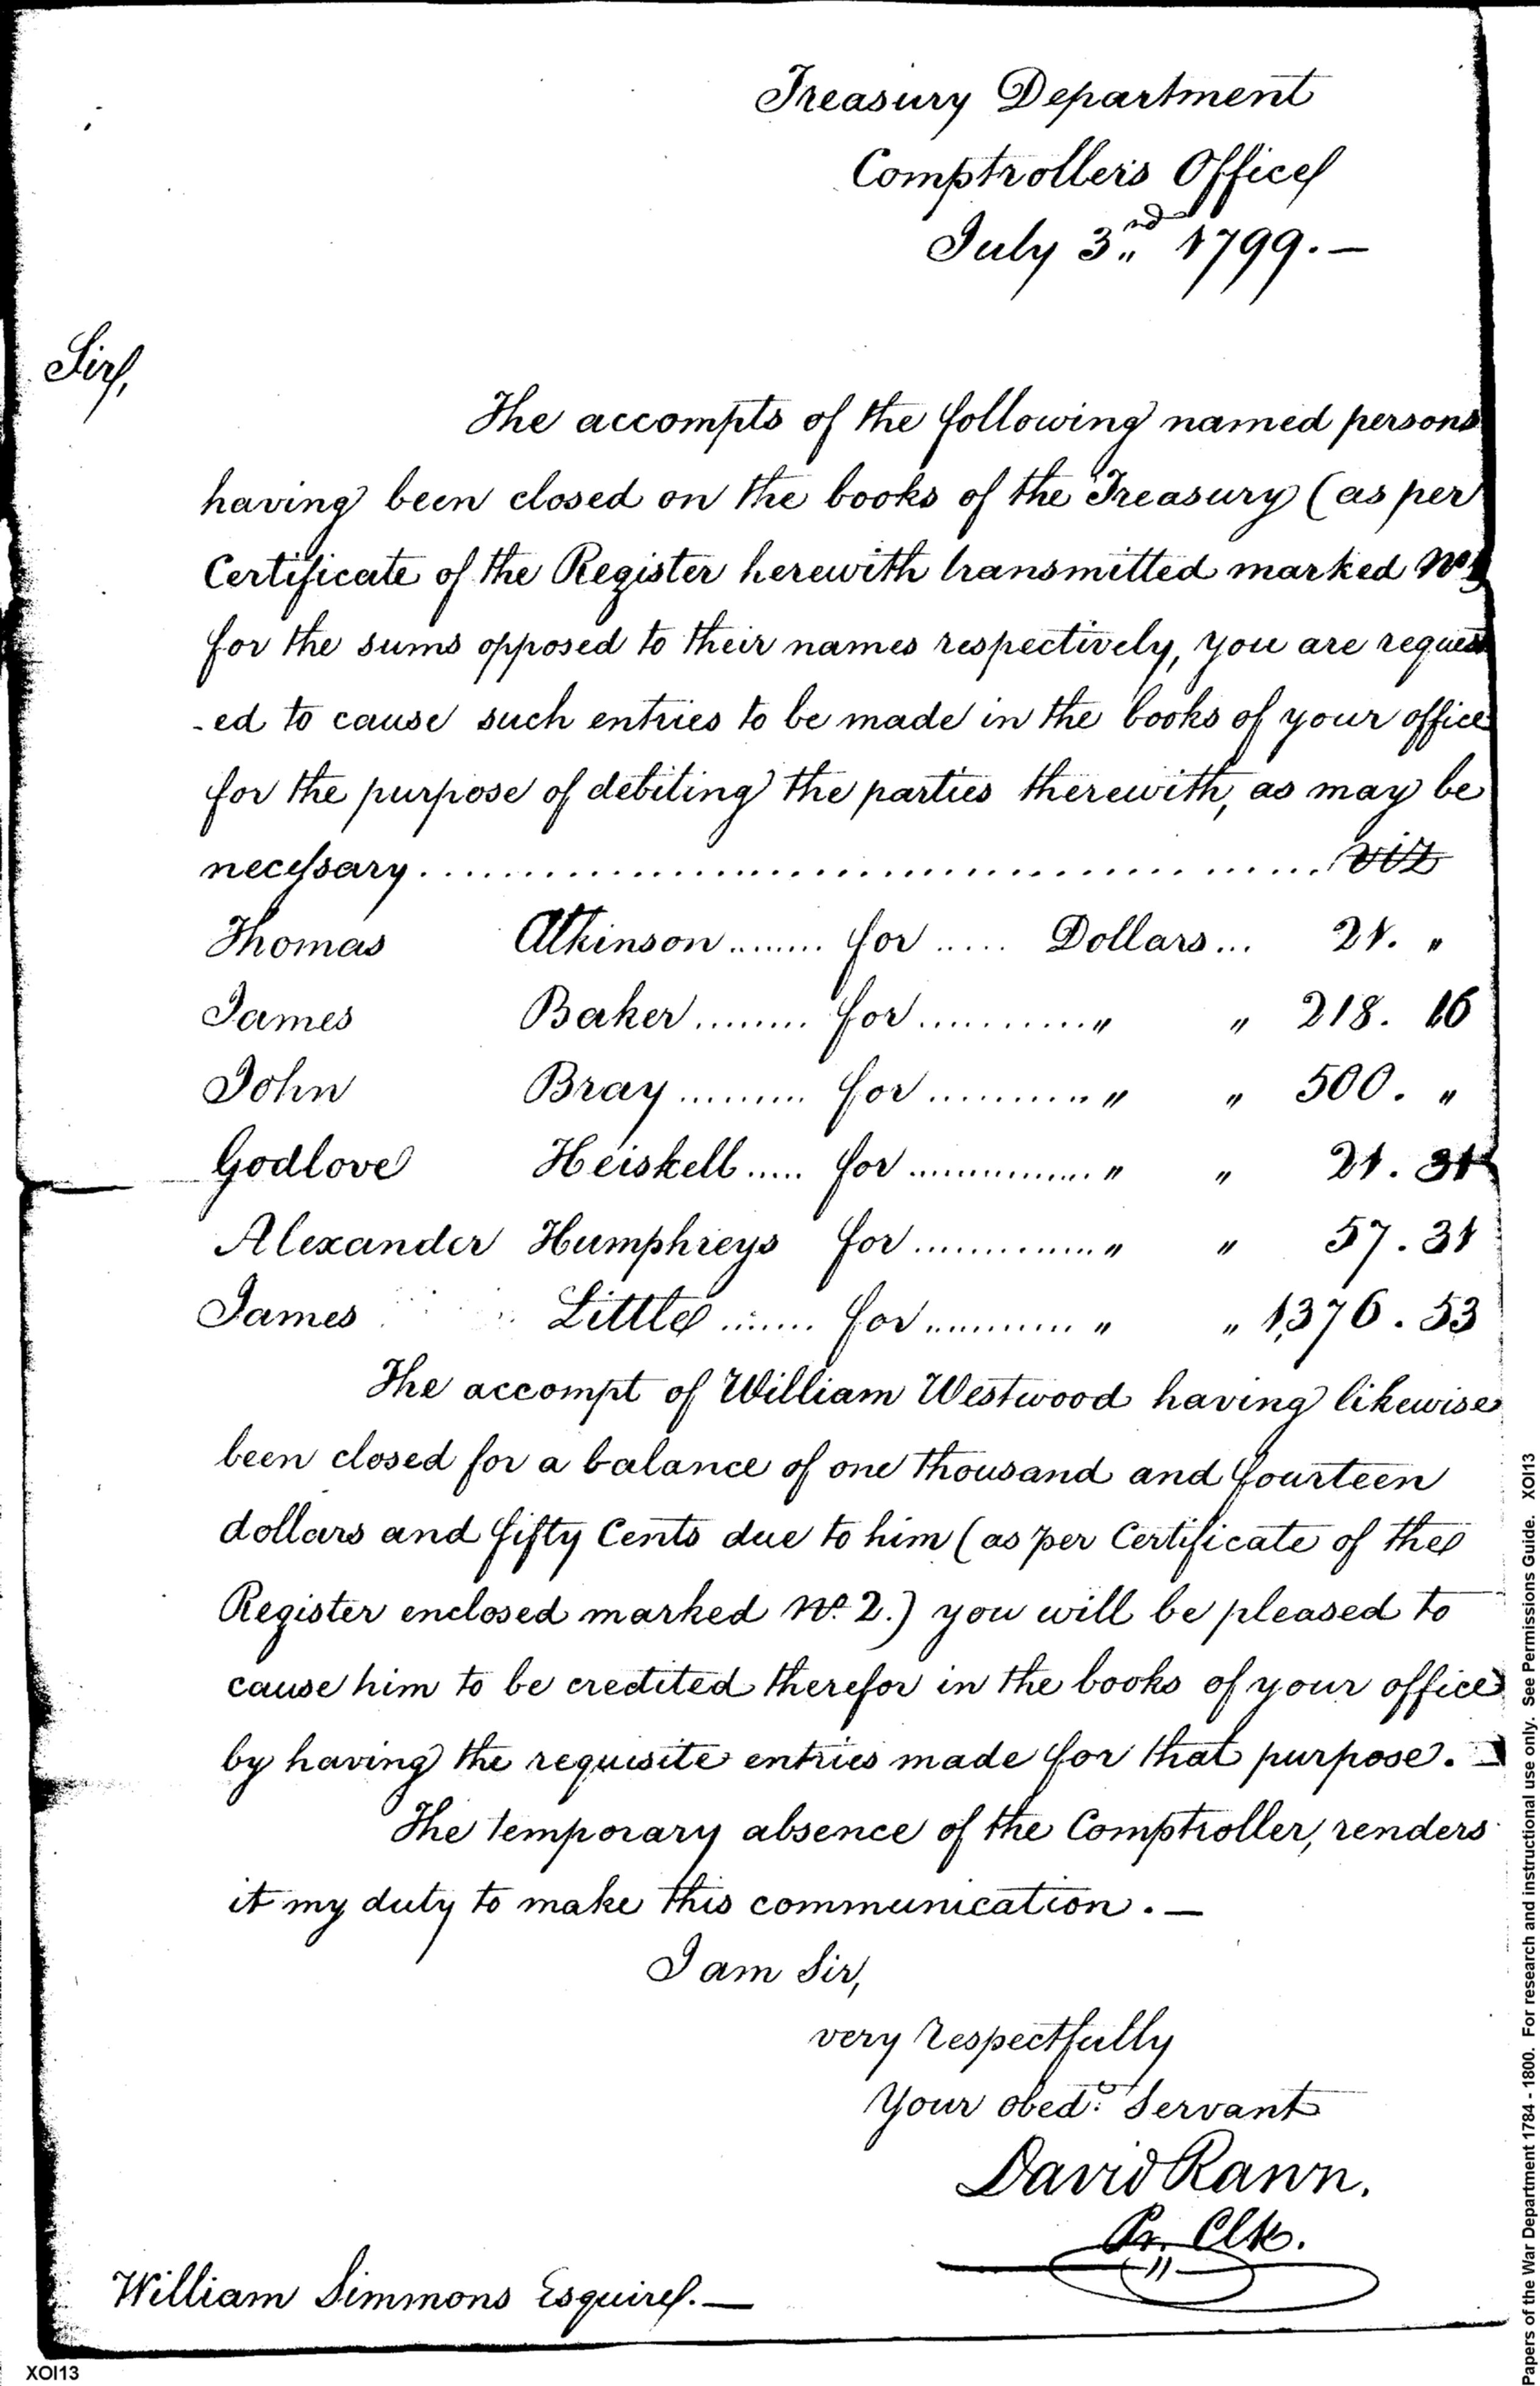 Treasury Department
Comptrollers Office
July 3rd 1799.—
Sir,
The accompts of the following named persons
having been closed on the books of the Treasury (as per
Certificate of the Register herewith transmitted marked No 1
for the sums opposed to their names respectively, you are request
-ed to cause such entries to be made in the books of your office
for the purpose of debiting the parties therewith, as may be
necessary........................................ viz
Thomas Atkinson........ for ..... Dollars... 21. "
James Baker........ for.......... " " 218. 16
John Bray......... for.......... " " 500. "
Godlove Heiskell..... for............. " " 21. 31
Alexander Humphreys for............. " " 57. 31
James Little....... for........... " " 1,376. 53
The accompt of William Westwood having likewise
been closed for a balance of one thousand and fourteen
dollars and fifty Cents due to him (as per Certificate of the
Register enclosed marked No. 2.) you will be pleased to
cause him to be credited therefor in the books of your office
by having the requisite entries made for that purpose.—
The temporary absence of the Comptroller, renders
it my duty to make this communication.—
I am Sir,
very respectfully
Your obedt. Servant
David Rawn.
Pr. Clk.
William Simmons Esquire.—
XOI13
Papers of the War Department 1784 - 1800. For research and instructional use only. See Permissions Guide. XOI13